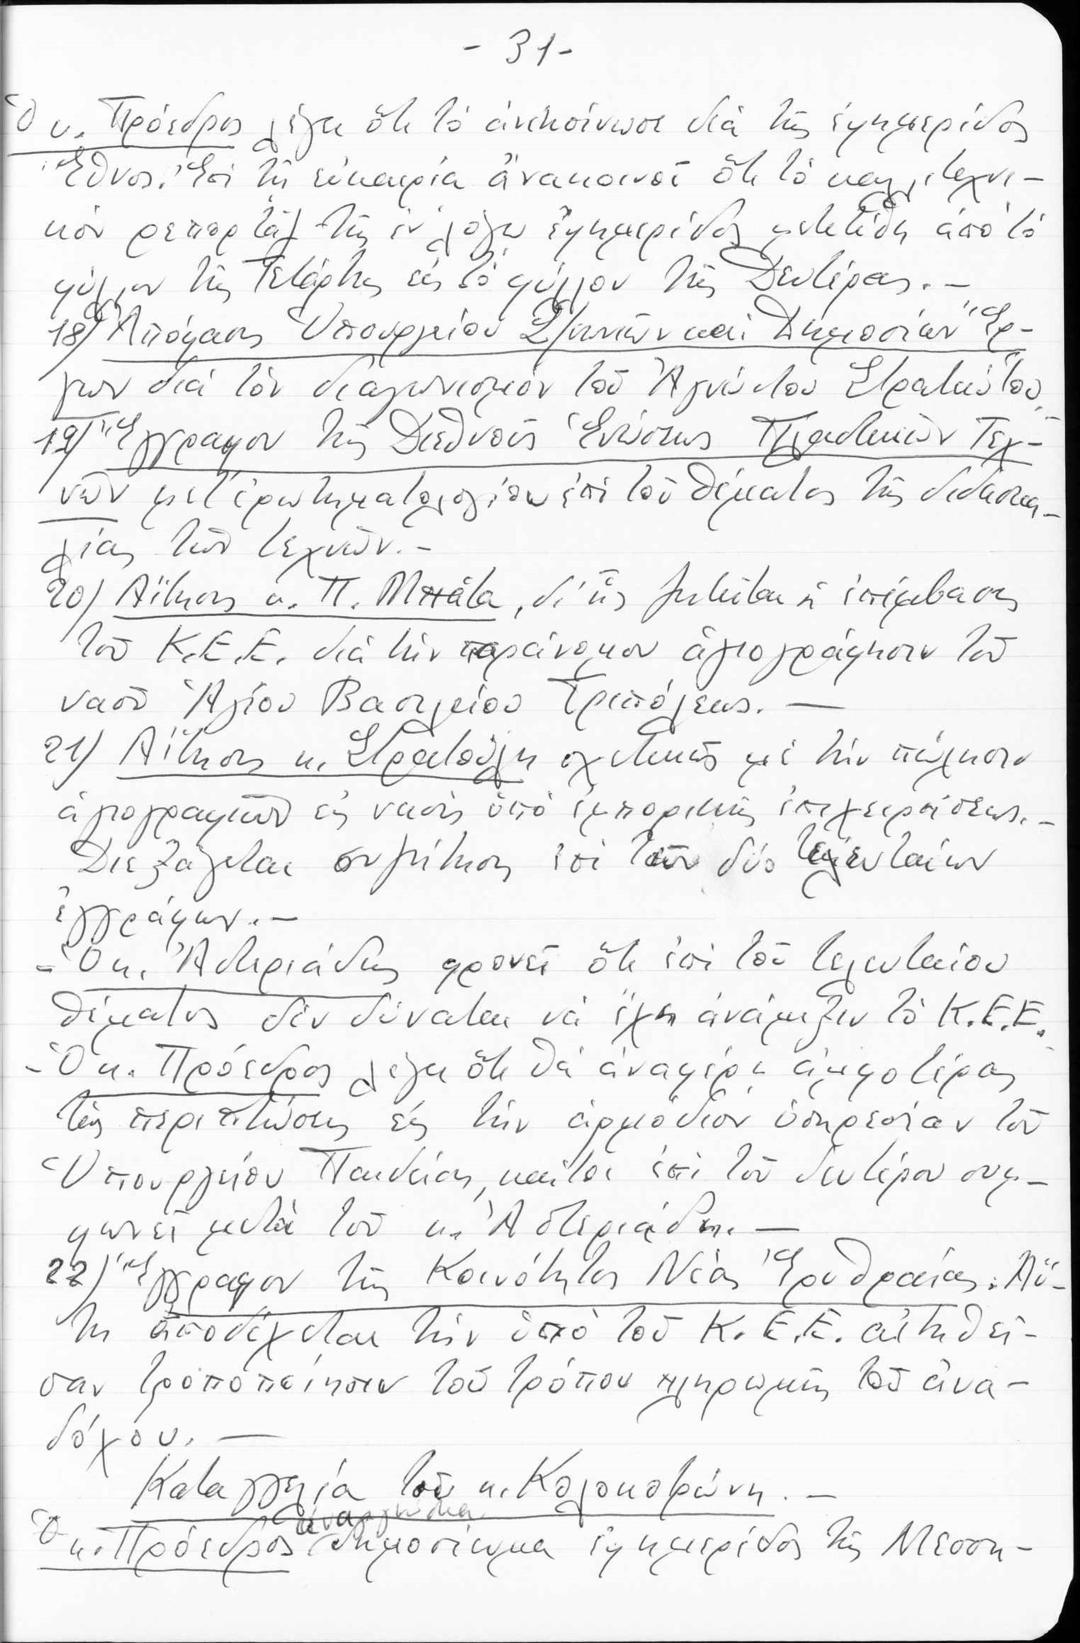 - 31 -
Ὁ κ. Πρόεδρος λέγει ὅτι τό ἀνεκοίνωσε διά τῆς ἐφημερίδος
Ἔθνος. Ἐπί τῇ εὐκαιρία ἀνακοινοῖ ὅτι τό καλλιτεχνι-
κόν ρεπορτάζ τῆς ἐν λόγω ἐφημερίδος μετετέθη ἀπό τό
φύλλον τῆς Τετάρτης εἰς τό φύλλον τῆς Δευτέρας. -
18) Ἀπόφασις Ὑπουργείου Συγ/νιῶν καί Δημοσίων Ἔρ-
γων διά τόν διαγωνισμόν τοῦ Ἀγνώστου Στρατιώτου.
19) Ἔγγραφον τῆς Διεθνοῦς Ἑνώσεως Πλαστικῶν Τεχ-
νῶν μετ' ἐρωτηματολογίου ἐπί τοῦ θέματος τῆς διδασκα-
λίας τῶν τεχνῶν. -
20) Αἴτησις κ. Π. Μπάτα, δι' ἧς ζητεῖται ἡ ἐπέμβασις
τοῦ Κ.Ε.Ε. διά τήν παράνομον ἁγιογράφησιν τοῦ
ναοῦ Ἁγίου Βασιλείου Τριπόλεως. —
21) Αἴτησις κ. Στρατούλη σχετικῶς μέ τήν πώλησιν
ἁγιογραφιῶν εἰς ναούς ὑπό ἐμπορικῆς ἐπιχειρήσεως. -
Διεξάγεται συζήτησις ἐπί τῶν δύο τελευταίων
ἐγγράφων. -
- Ὁ κ. Ἀστεριάδης φρονεῖ ὅτι ἐπί τοῦ τελευταίου
θέματος δέν δύναται νά ἔχῃ ἀνάμιξιν τό Κ.Ε.Ε.
- Ὁ κ. Πρόεδρος λέγει ὅτι θά ἀναφέρῃ ἀμφοτέρας
τάς περιπτώσεις εἰς τήν ἁρμόδιον ὑπηρεσίαν τοῦ
Ὑπουργείου Παιδείας, καίτοι ἐπί τοῦ δευτέρου συμ-
φωνεῖ μετά τοῦ κ. Ἀστεριάδη. —
22) Ἔγγραφον τῆς Κοινότητος Νέας Ἐρυθραίας. Αὕ-
τη ἀποδέχεται τήν ὑπό τοῦ Κ.Ε.Ε. αἰτηθεῖ-
σαν τροποποίησιν τοῦ τρόπου πληρωμῆς τοῦ ἀνα-
δόχου. —
Καταγγελία τοῦ κ. Κολοκοτρώνη. -
Ὁ κ. Πρόεδρος ἀναγινώσκει δημοσίευμα ἐφημερίδος τῆς Μεσση-